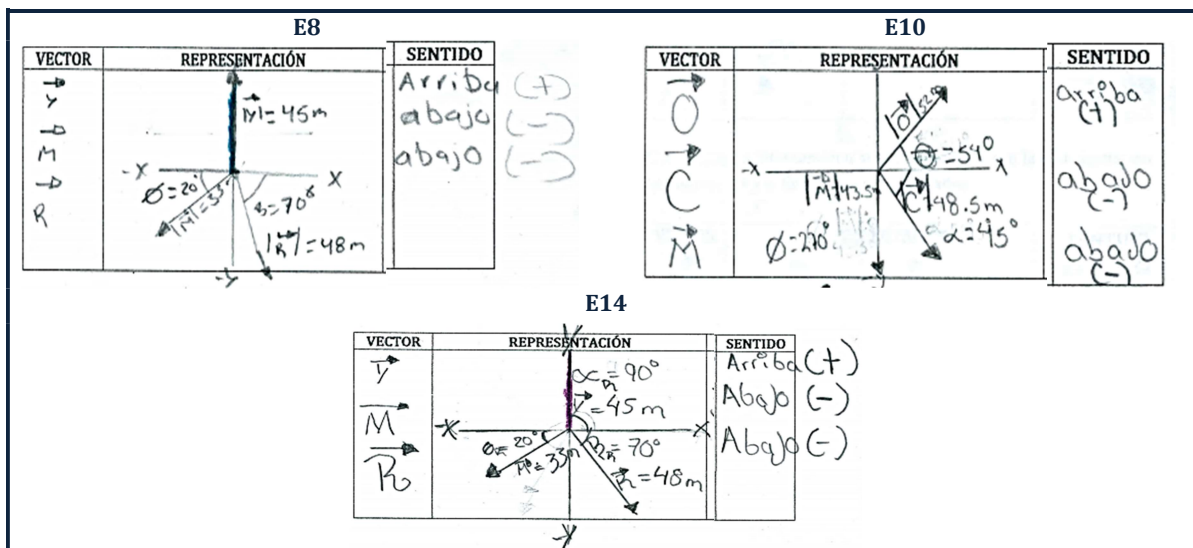 E8
VECTOR REPRESENTACIÓN SENTIDO
Y
M
R
|M|=45m
-X X
Ø=20°
|M|=33
β=70°
|R|=48m
-Y
Arriba (+)
abajo (-)
abajo (-)
E10
VECTOR REPRESENTACIÓN SENTIDO
O
C
M
|O|52
θ=54°
-X X
|M|43.5
|C|48.5m
Ø=270°
α=45°
arriba
(+)
abajo
(-)
abajo
(-)
E14
VECTOR REPRESENTACIÓN SENTIDO
Y
M
R
Y
=90°
=45m
-X X
20°
M=33m
=70°
R=48m
-Y
Arriba (+)
Abajo (-)
Abajo (-)